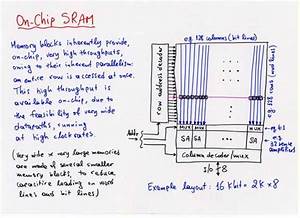 On-Chip SRAM
Memory blocks inherently provide,
on-chip, very high throughputs,
owing to their inherent parallelism:
an entire row is accessed at once.
This high throughput is
available on-chip, due to
the feasibility of very wide
datapaths, running
at high clock rates.
(Very wide x very large memories
are made of several smaller
memory blocks, to reduce
capacitive loading on word
lines and bit lines)
e.g. 128 columns (bit lines)
row address decoder
e.g. 128 rows
MUX MUX MUX
SA SA SA
e.g. 32 sense
amplifiers
Addr
Column decoder/mux
I/O 8
Example layout: 16 Kbit = 2K x 8